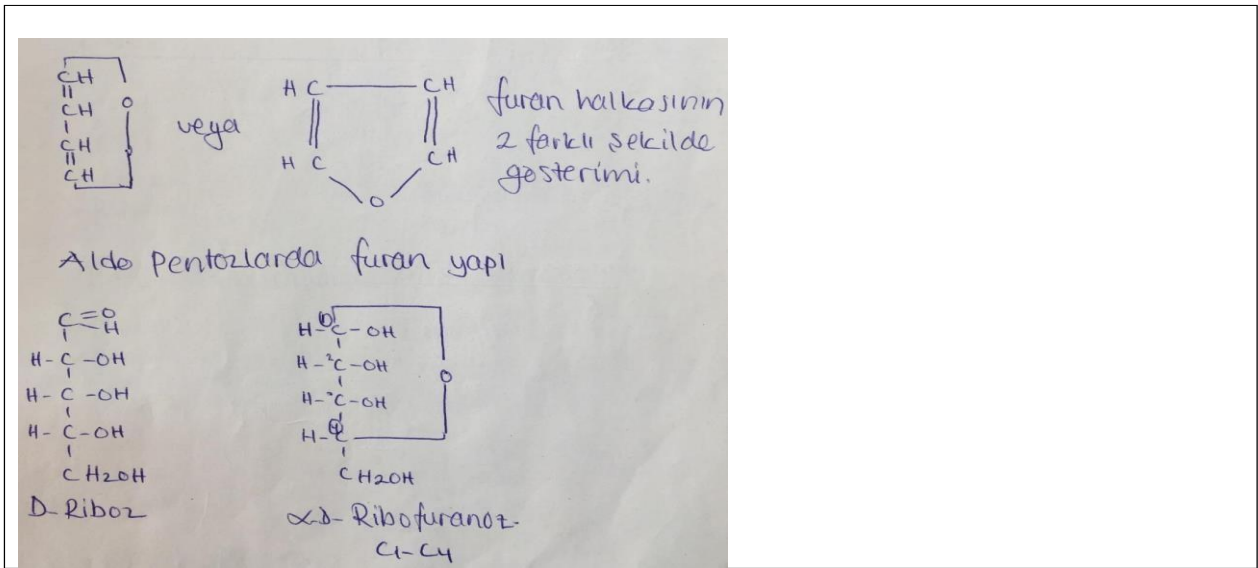 CH
||
CH
|
CH
||
CH
O
veya
H C
CH
H C
CH
O
furan halkasının
2 farklı şekilde
gösterimi.
Aldo Pentozlarda furan yapı
C=O
H
H-C-OH
H-C-OH
H-C-OH
CH2OH
D-Riboz
H-C-OH
H-²C-OH
H-C-OH
H-C
O
CH2OH
αD-Ribofuranoz
C1-C4